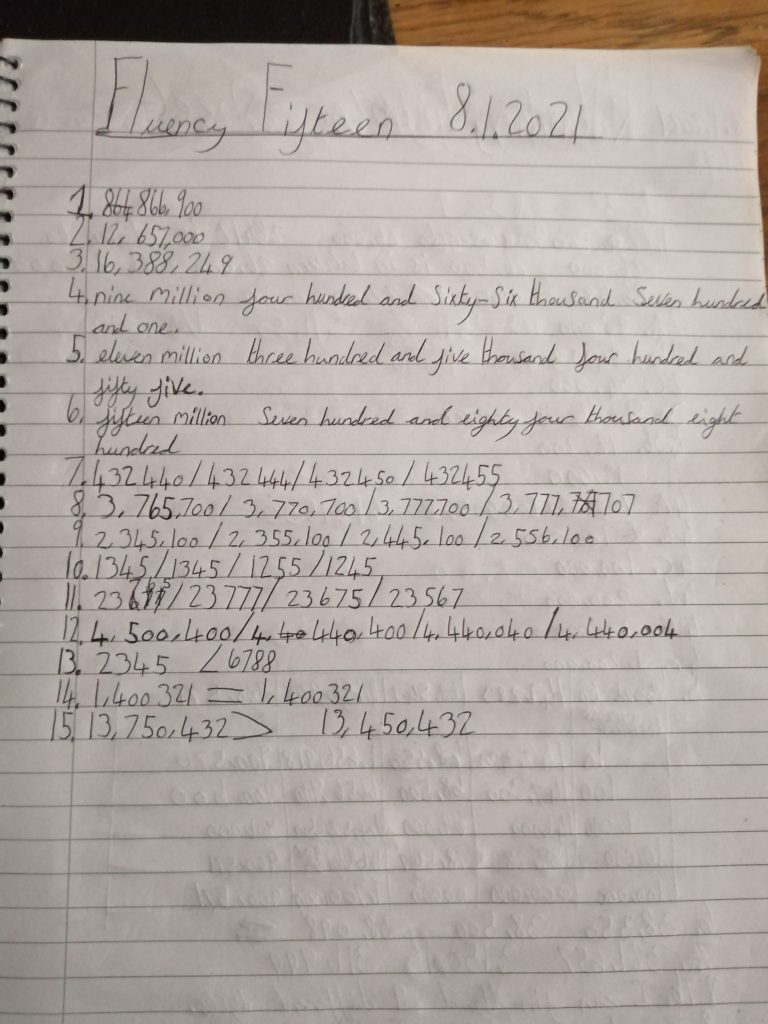 Fluency Fifteen 8.1.2021
1. 864,866,900
2. 12, 657,000
3. 16, 388,249
4. nine million four hundred and Sixty-Six thousand Seven hundred
and one.
5. eleven million three hundred and five thousand four hundred and
fifty five.
6. fifteen million Seven hundred and eighty four thousand eight
hundred
7. 432440/432444/432450/432455
8. 3,765,700/ 3,770,700/3,777,700/3,777,707
9. 2,345,100/2,355,100/2,445,100/2,556,100
10. 1345/1345/1255/1245
11. /23777/23675/23567
12. 4,500,400/4,440,400/4,440,040/4,440,004
13. 2345 / 6788
14. 1,400321 = 1,400321
15. 13,750,432 > 13,450,432